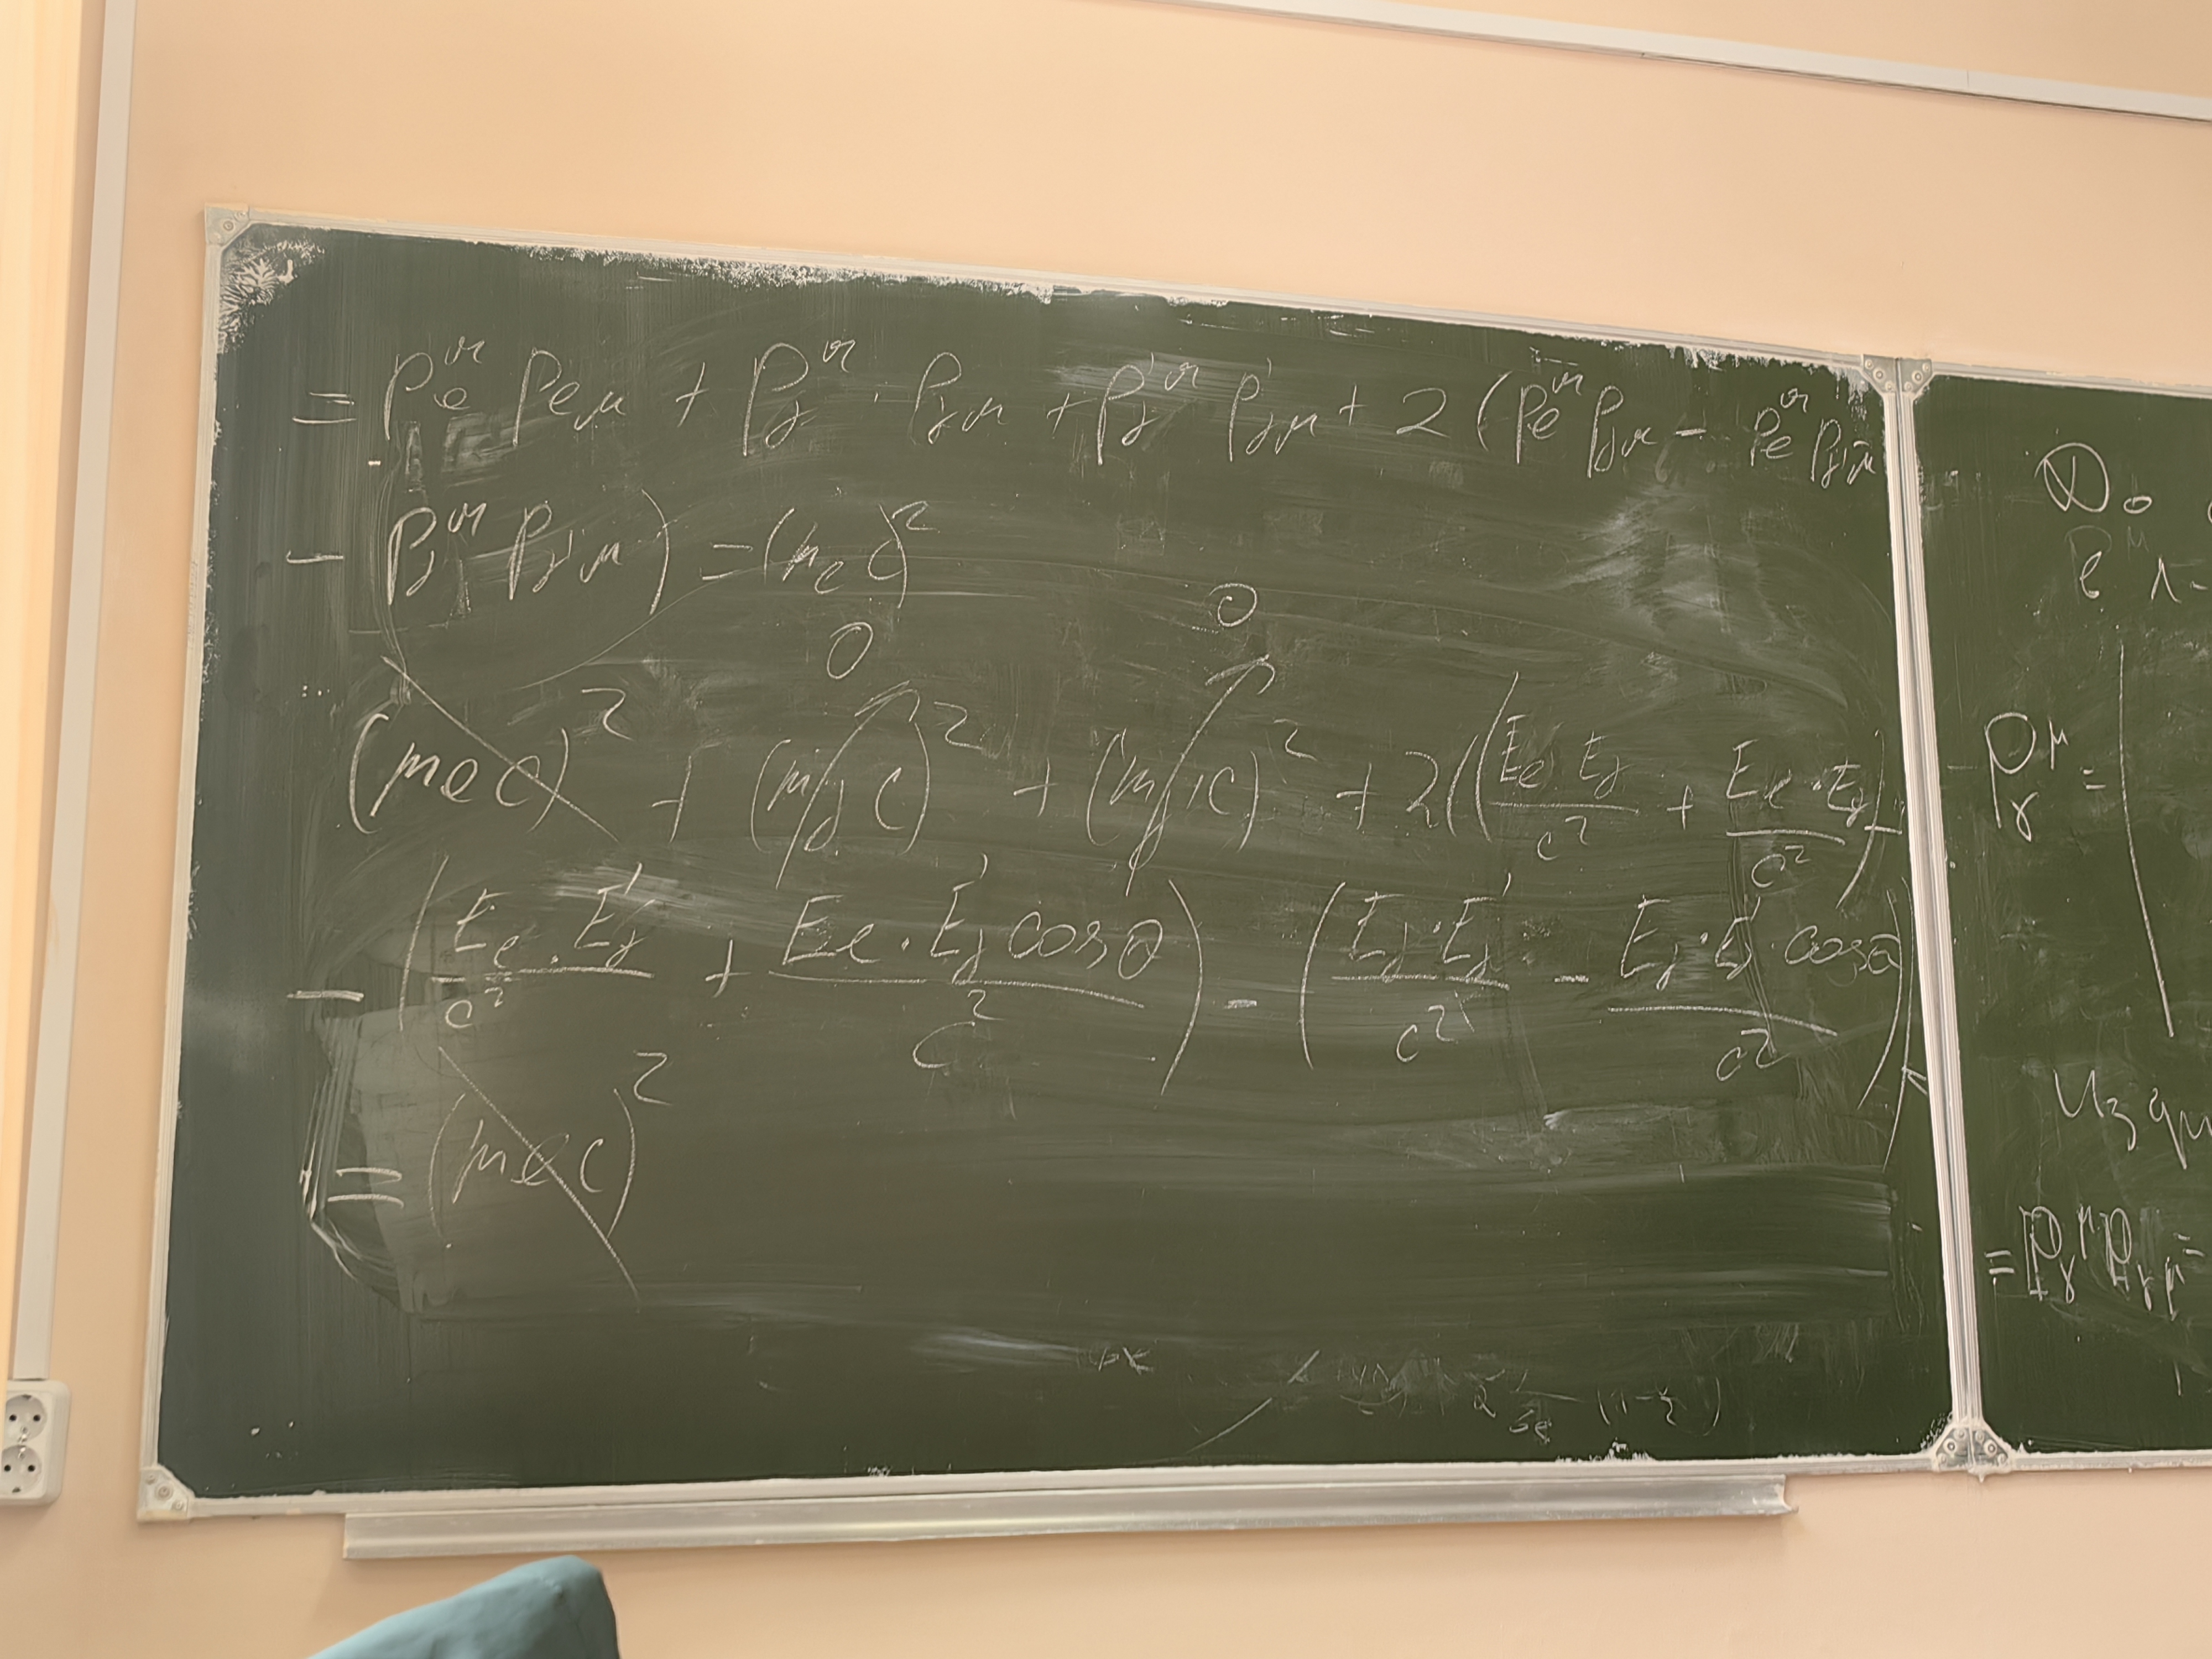 = p_e^μ p_{eμ} + p_γ^μ · p_{γμ} + p'_γ^μ p'_{γμ} + 2 (p_e^μ p_{γμ} - p_e^μ p_{γ'μ}
- p_γ^μ p_{γ'μ}) = (m_e c)^2
0 0
(m_e c)^2 + (m_γ c)^2 + (m_γ' c)^2 + 2((E_e · E_γ / c^2 + E_e · E_γ / c^2) -
- (E_e · E'_γ / c^2 + E_e · E'_γ cosθ / c^2) - (E_γ · E'_γ / c^2 - E_γ · E'_γ · cosθ / c^2)) =
= (m_e c)^2
До
p_γ^μ =
= p_γ^μ p_{γμ} =